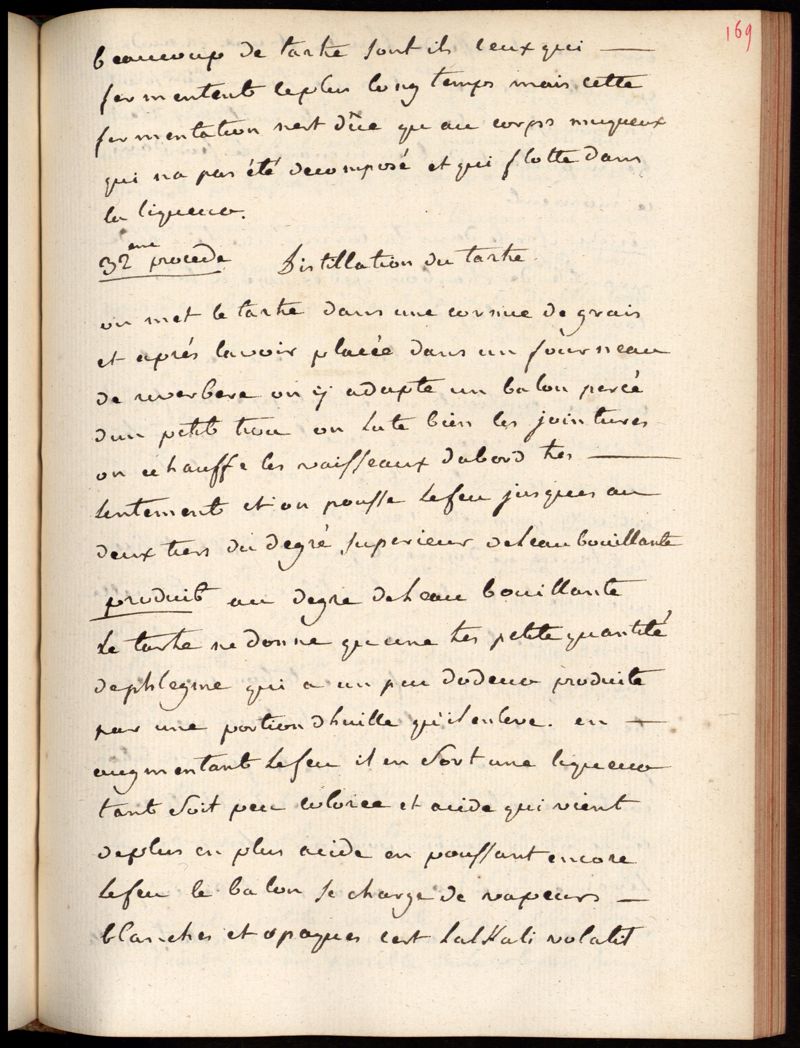 169
beaucoup de tartre sont ils ceux qui —
fermentent le plus long temps mais cette
fermentation nest düe qu au corps muqueux
qui na pas été decomposé et qui flotte dans
la liqueur.
32eme procede Distillation du tartre
on met le tartre dans une cornue de grais
et aprés lavoir placée dans un fourneau
de reverbere on ij adapte un balon percé
dun petit trou on Lute bien les jointures
on echauffe les vaisseaux dabord tres —
Lentement et on pousse Lefeu jusques au
deux tiers du degré superieur deLeau bouillante
produit au degre deLeau bouillante
Le tartre ne donne quune tres petite quantité
dephlegme qui a un peu dodeur produite
par une portion dhuille qu'il enleve. en —
augmentant Lefeu il en Sort une liqueur
tant Soit peu colorée et acide qui vient
deplus en plus acide en poussant encore
Lefeu le balon se charge de vapeurs —
blanches et opaques cest LalKali volatil